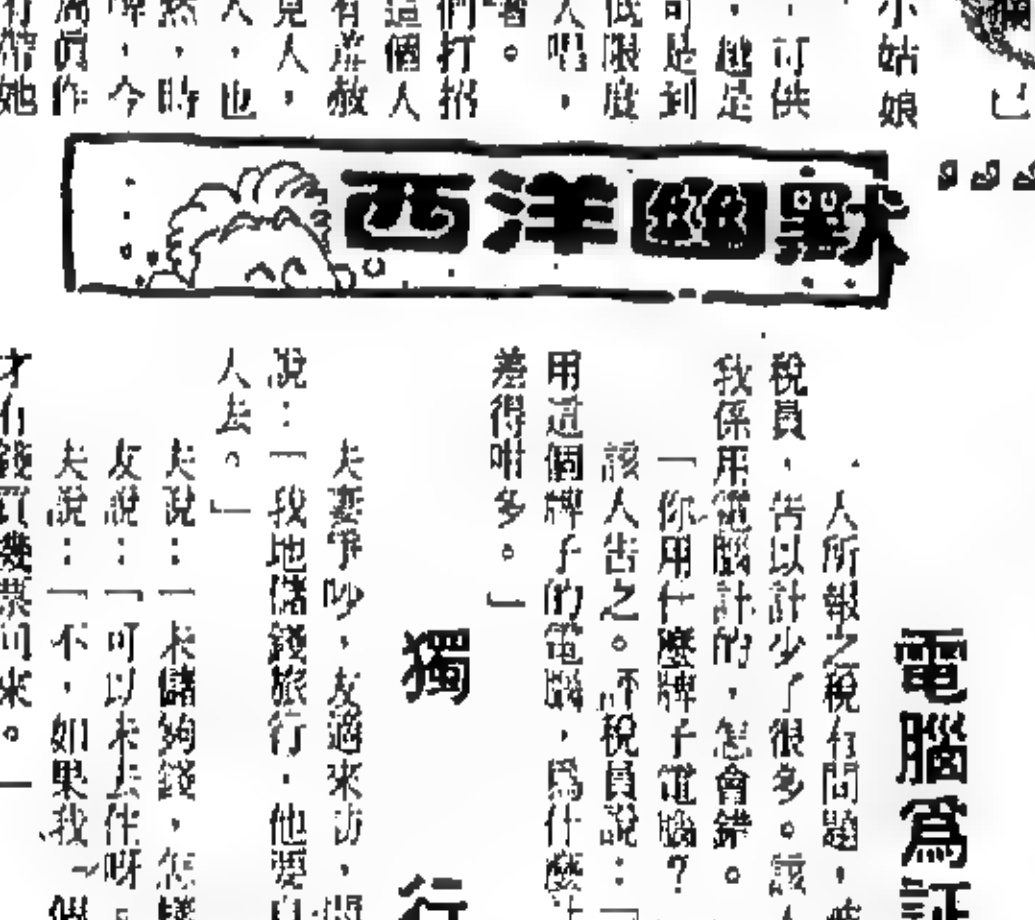 小姑娘
可供
越是
可是到
低限度
人唱，
們打招
這個人
有羞赧
見人，
人，也
然，時
，今
西洋幽默
電腦為証
人所報之稅有問題，
稅員，告以計少了很多。該
我係用電腦計的，怎會錯。
「你用什麼牌子電腦？
該人告之。評稅員說：「
用這個牌子的電腦，為什麼
差得咁多。」
獨行
夫妻爭吵，友適來訪，
說：「我地儲錢旅行，他要
人去。」
夫說：「未儲夠錢，怎樣
友說：「可以未去住呀。
夫說：「不，如果我
才有錢買幾票回來。」